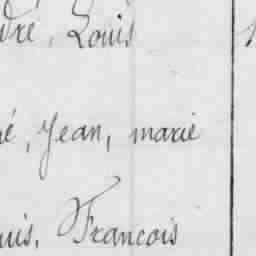 dré, Louis
né, Jean, marie
uis, François